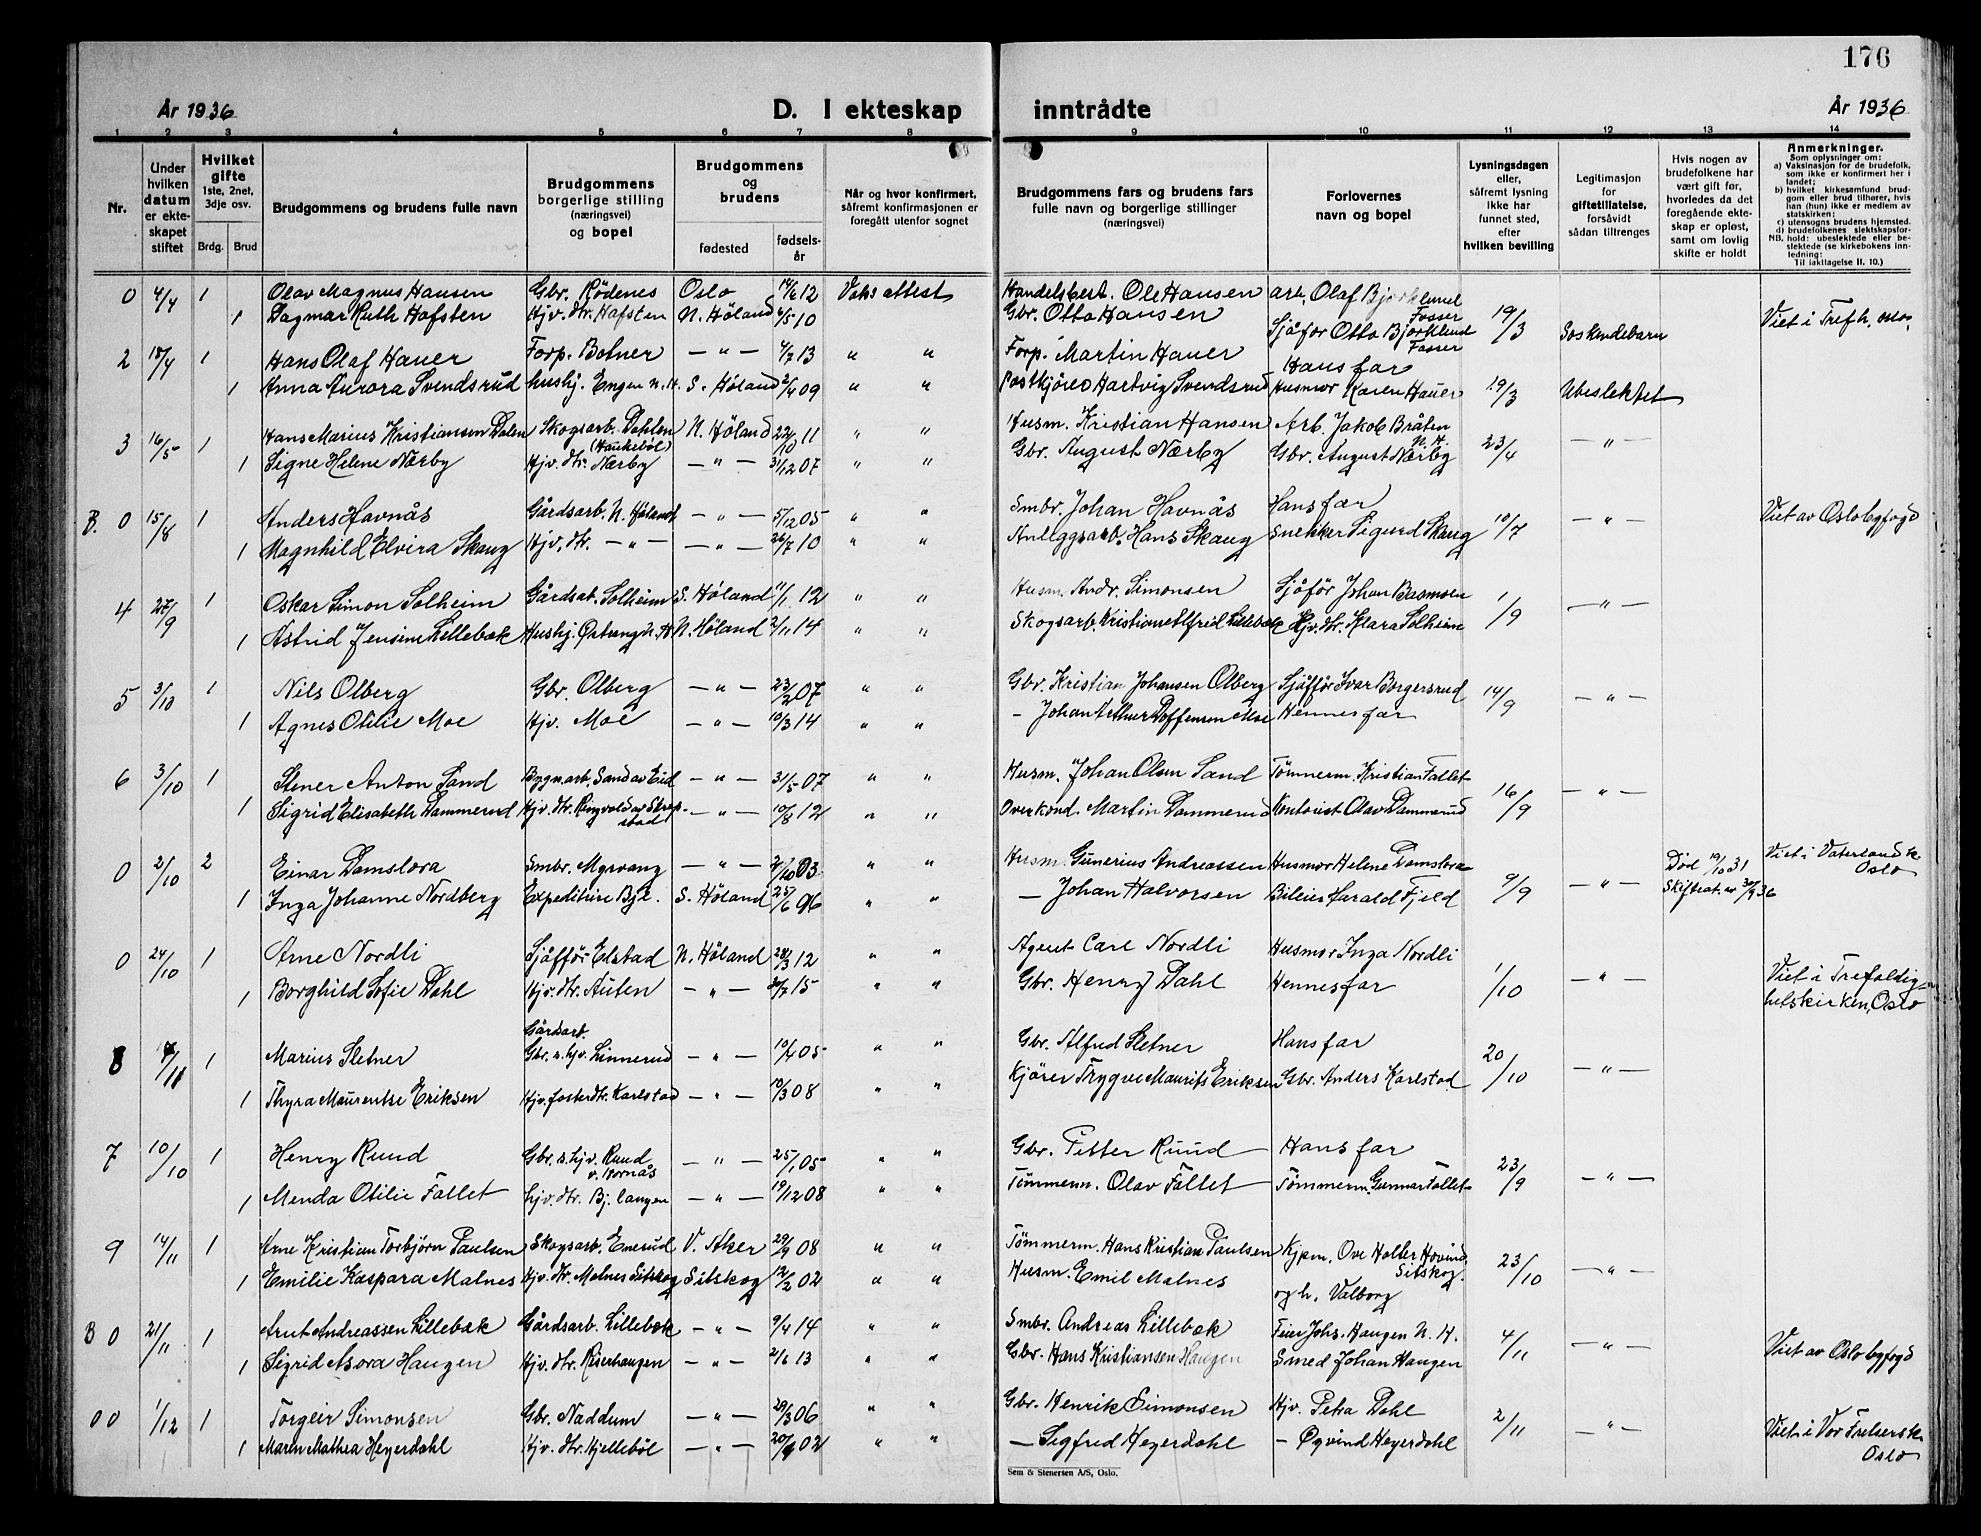 176
År 1936 D. I ekteskap inntrådte År 1936
1 2 3 4 5 6 7 8 9 10 11 12 13 14
Nr.
Under hvilken datum er ekteskapet stiftet
Hvilket gifte 1ste, 2net, 3dje osv.
Brdg. Brud
Brudgommens og brudens fulle navn
Brudgommens borgerlige stilling (næringsvei) og bopel
Brudgommens og brudens
fødested fødsels-år
Når og hvor konfirmert, såfremt konfirmasjonen er foregått utenfor sognet
Brudgommens fars og brudens fars fulle navn og borgerlige stillinger (næringsvei)
Forlovernes navn og bopel
Lysningsdagen eller, såfremt lysning ikke har funnet sted, efter hvilken bevilling
Legitimasjon for giftetillatelse, forsåvidt sådan tiltrenges
Hvis nogen av brudefolkene har vært gift før, hvorledes da det foregående ekteskap er opløst, samt om lovlig skifte er holdt
Anmerkninger.
Som oplysninger om:
a) Vaksinasjon for de brudefolk, som ikke er konfirmert her i landet;
b) hvilket kirkesamfund brudgom eller brud tilhører, hvis han (hun) ikke er medlem av statskirken;
c) utensogns brudens hjemsted.
d) brudefolkenes slektskapsforhold: ubeslektede eller beslektede (se kirkebokens innledning:
NB. Til iakttagelse II. 10.)
0 4/4 1 Olav Magnus Hansen Gbr. Rödenes Oslo 14/6 12 Vaks attest Handelsbest. Ole Hansen arb. Olaf Bjorklund Fosser
1 Dagmar Ruth Hafsten Hjv. dtr. Hafsten N. Höland 6/5 10 Gbr. Otto Hansen Sjåfør Otto Bjorklund Fosser 19/3 Soskendebarn Viet i Trefh., Oslo.
2 18/4 1 Hans Olaf Hauer Forp. Botner — " — 4/7 13 " " Forp. Martin Hauer Hans far
1 Anna Aurora Svendsrud hushj. Engen n. H. S. Høland 2/4 09 " " Postkjörer Hartvig Svendsrud Husmor Karen Hauer 19/3 Ubeslektet
3 16/5 1 Hans Marius Kristiansen Dalen Skogsarb. Dahlen (Haukeböl) N. Höland 22/10 11 " " Husm. Kristian Hansen Arb. Jakob Bråten N. H.
1 Signe Helene Nærby Hjv. dtr. Nærby — " — 31/12 07 " " Gbr. August Nærby Gbr. August Nærby 23/4 — " —
B. 0 15/8 1 Anders Havnås Gårdsarb. N. Höland — " — 5/12 05 " " Smbr. Johan Havnås Hans far
1 Magnhild Elvira Skaug Hjv. dtr. — " — — " — 26/7 10 " " Anleggsarb. Hans Skaug Snekker Sigurd Skaug 10/7 — " — Viet av Oslo byfogd
4 27/9 1 Oskar Simon Solheim Gårdsarb. Solheim S. Höland 11/1 12 " " Husm. Andr. Simonsen Sjåför Johan Basmoen
1 Astrid Jensine Lillebæk Hushj. Østvang N. H. N. Höland 2/11 14 " " Skogsarb. Kristian Alfred Lillebæk Hjv. dtr. Klara Solheim 1/9 — " —
5 3/10 1 Nils Olberg Gbr. Olberg — " — 23/2 07 " " Gbr. Kristian Johansen Olberg Sjåfför Ivar Borgersrud
1 Agnes Otilie Moe Hjv. Moe — " — 10/3 14 " " — Johan Arthur Doffensen Moe Hennes far 14/9 — " —
6 3/10 1 Stener Anton Sand Bygn.arb. Sand av Eid — " — 31/5 07 " " Husm. Johan Olsen Sand Tömmerm. Kristian Fallet
1 Sigrid Elisabeth Dammerud Hjv. dtr. Ringvold av Skrepstad — " — 10/8 12 " " Overkond. Martin Dammerud Kontorist Olav Dammerud 16/9 — " —
0 2/10 2 Einar Damslora Smbr. Myrvang — " — /10 03 " " Husm. Gunerius Andreassen Husmor Helene Damslora
1 Inga Johanne Nordberg Expeditrise Bjl. S. Höland 25/6 96 " " — Johan Halvorsen Bileier Harald Fjeld 9/9 — " — Død 19/10 31 Skifteat. av 30/9 36 Viet i Vaterland k. Oslo
0 24/10 1 Arne Nordli Sjåfför Elstad N. Höland 28/3 12 " " Agent Carl Nordli Husmor Inga Nordli
1 Borghild Sofie Dahl Hjv. dtr. Auten — " — /7 15 " " Gbr. Henry Dahl Hennes far 1/10 — " — Viet i Trefoldighetskirken, Oslo
8 /11 1 Marius Sletner Gårdsarb. Gbr. s. hjv. Linnerud — " — 10/4 05 " " Gbr. Alfred Sletner Hans far
1 Thyra Maurentse Eriksen Hjv. foster dtr. Karlstad — " — 10/3 08 " " Kjörer Trygve Maurits Eriksen Gbr. Anders Karlstad 20/10 — " —
7 10/10 1 Henry Ruud Gbr. s. hjv. Ruud v. Bornås — " — 25/1 05 " " Gbr. Petter Ruud Hans far
1 Menda Otilie Fallet hjv. dtr. Bj. langen — " — 19/12 08 " " Tömmerm. Olav Fallet Tömmerm. Gunnar Fallet 23/9 — " —
9 14/11 1 Arne Kristian Torbjörn Paulsen Skogsarb. Enerud V. Aker 29/9 08 " " Tömmerm. Hans Kristian Paulsen Kjpm. Ove Holter Hovind Sitskog.
1 Emilie Kaspara Malnes Hjv. dtr. Malnes Sitskog Sitskog 12/2 02 " " Husm. Emil Malnes og h. Valborg 23/10 — " —
B 0 21/11 1 Arnt Andreassen Lillebæk Gårdsarb. Lillebæk — " — 9/4 14 " " Smbr. Andreas Lillebæk Feier Johs. Haugen N. H.
1 Sigrid Asora Haugen Hjv. dtr. Riserhaugen — " — 2/6 13 " " Gbr. Hans Kristiansen Haugen Smed Johan Haugen 4/11 — " — Viet av Oslo byfogd
00 1/12 1 Torgeir Simonsen Gbr. Naddum — " — 29/3 06 " " Gbr. Henrik Simonsen Hjv. Petra Dahl
1 Maren Mathea Heyerdahl Hjv. dtr. Hjelleböl — " — 20/9 02 " " — Sigfred Heyerdahl — Øyvind Heyerdahl 2/11 — " — Viet i Vor Frelsers k. Oslo
Sem & Stenersen A/S, Oslo.